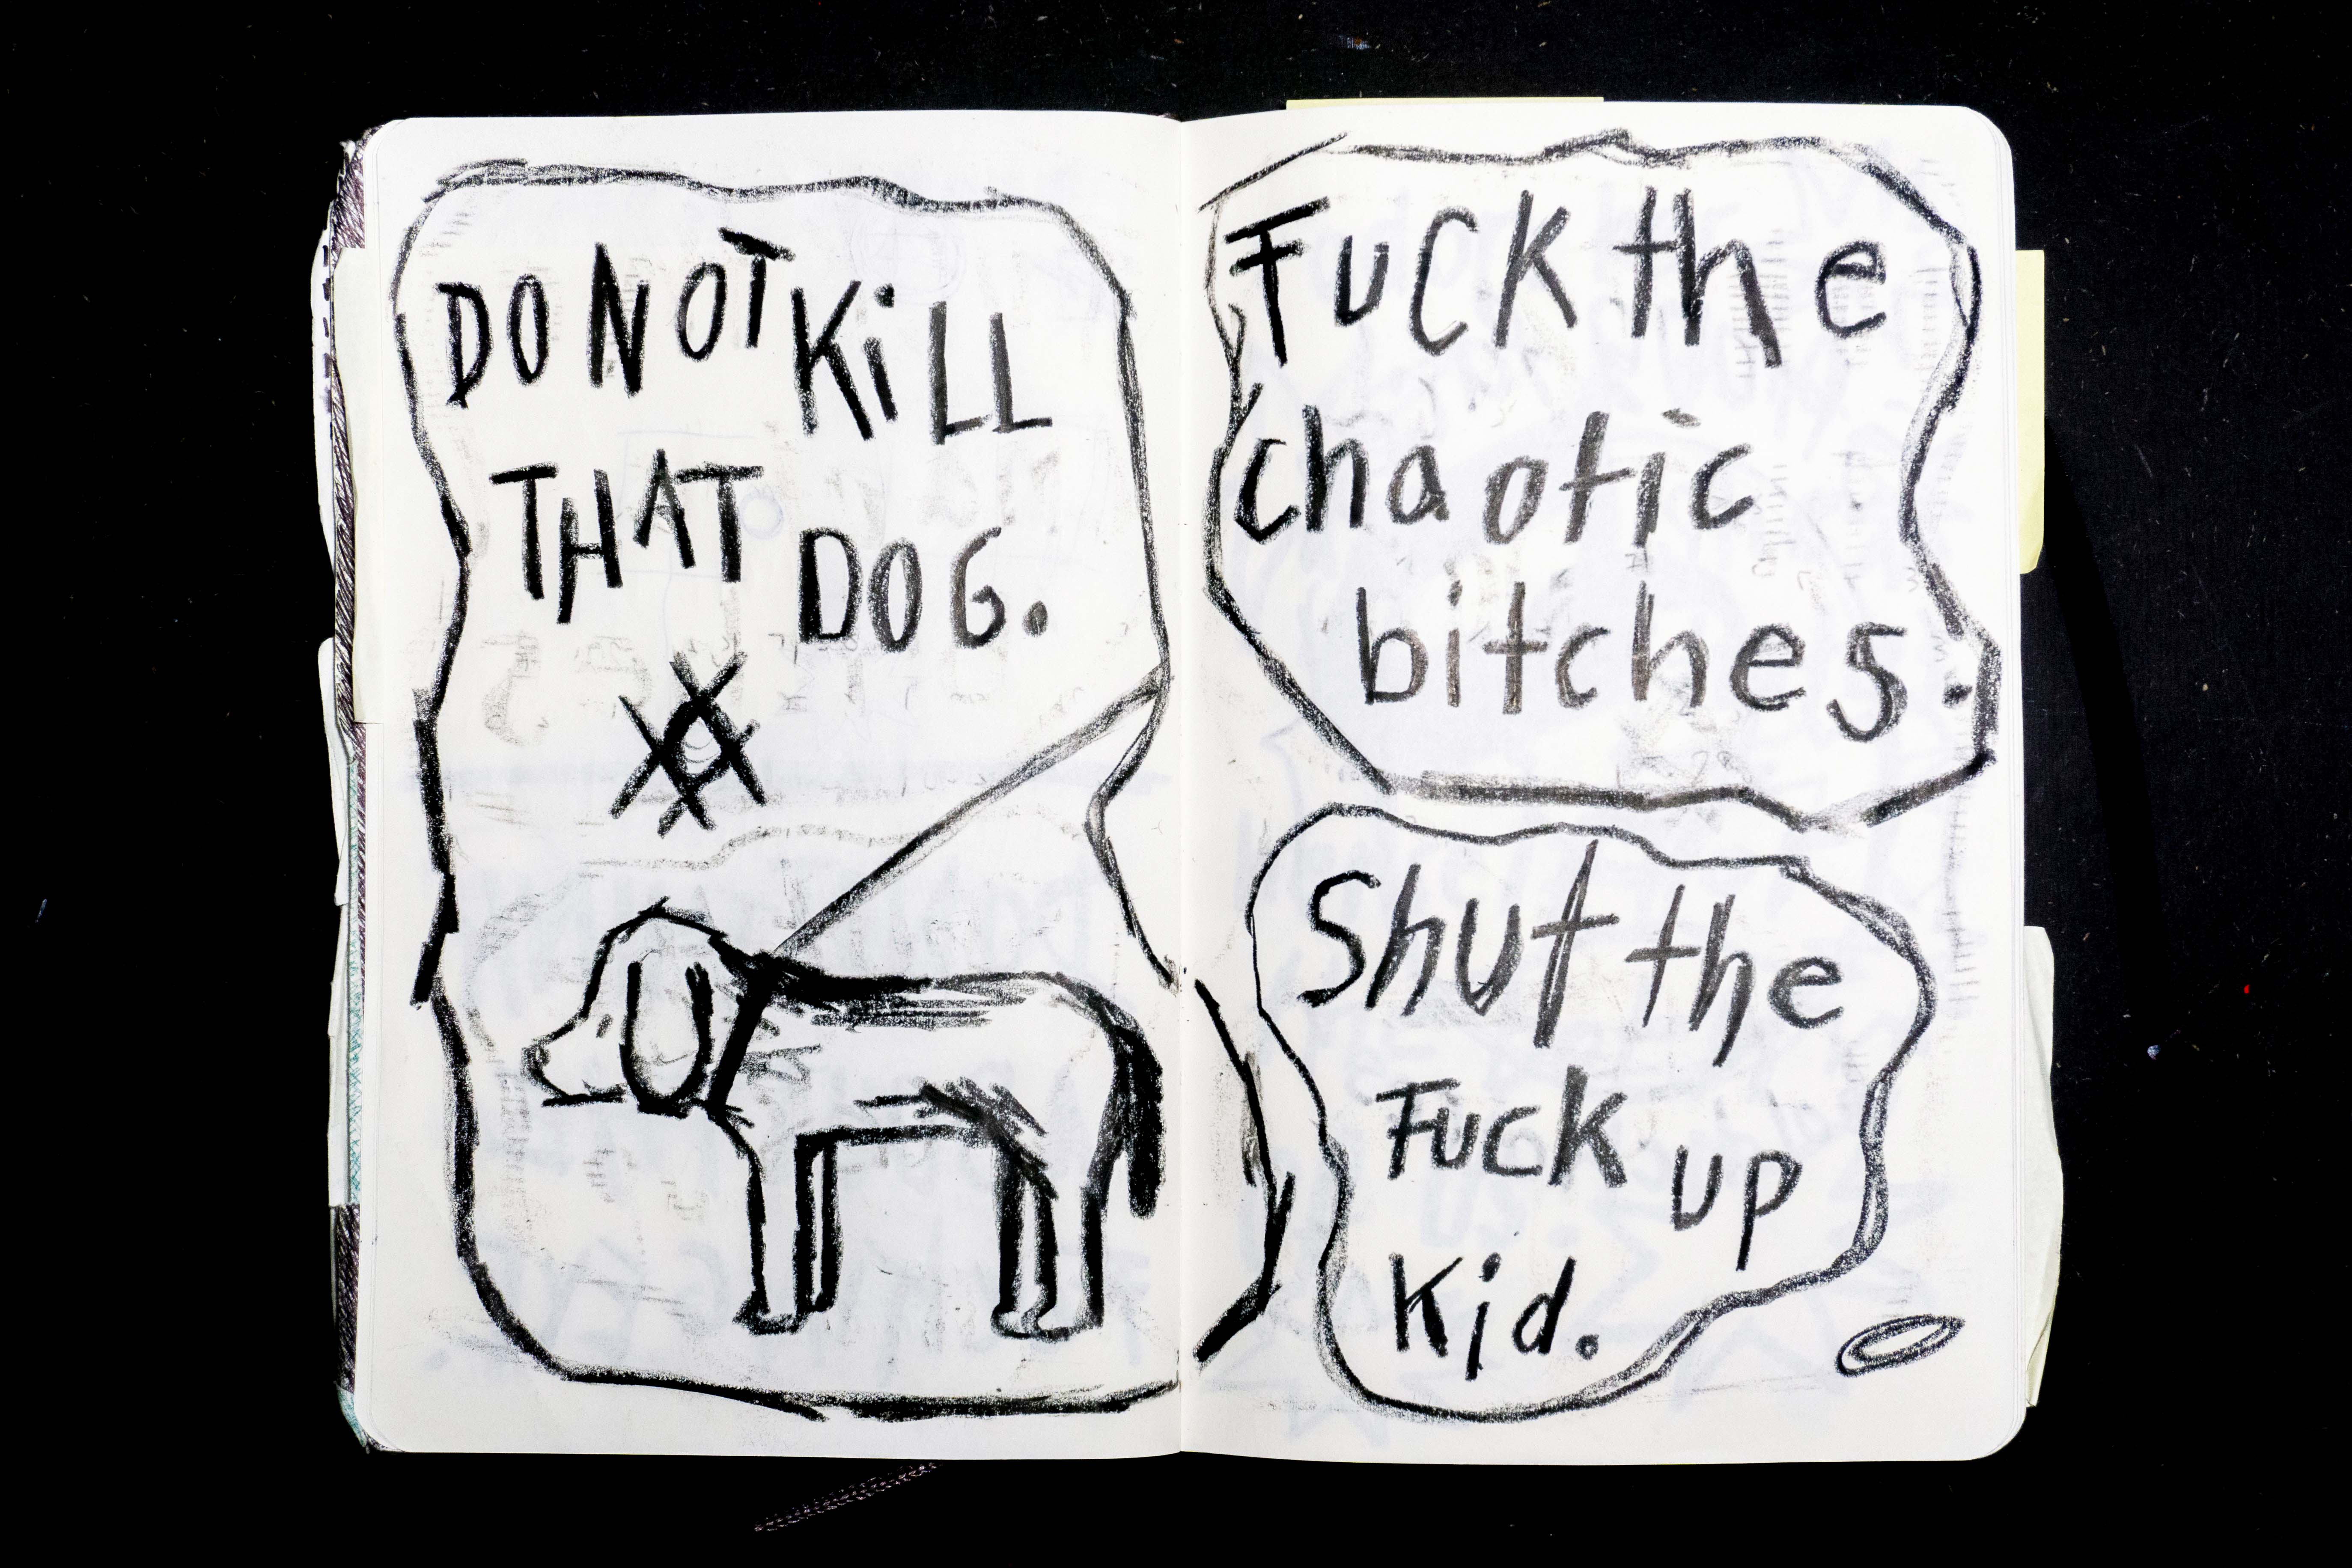 DO NOT KiLL
THAT DOG.
Fuck the
chaotic
bitches.
Shut the
Fuck up
Kid.